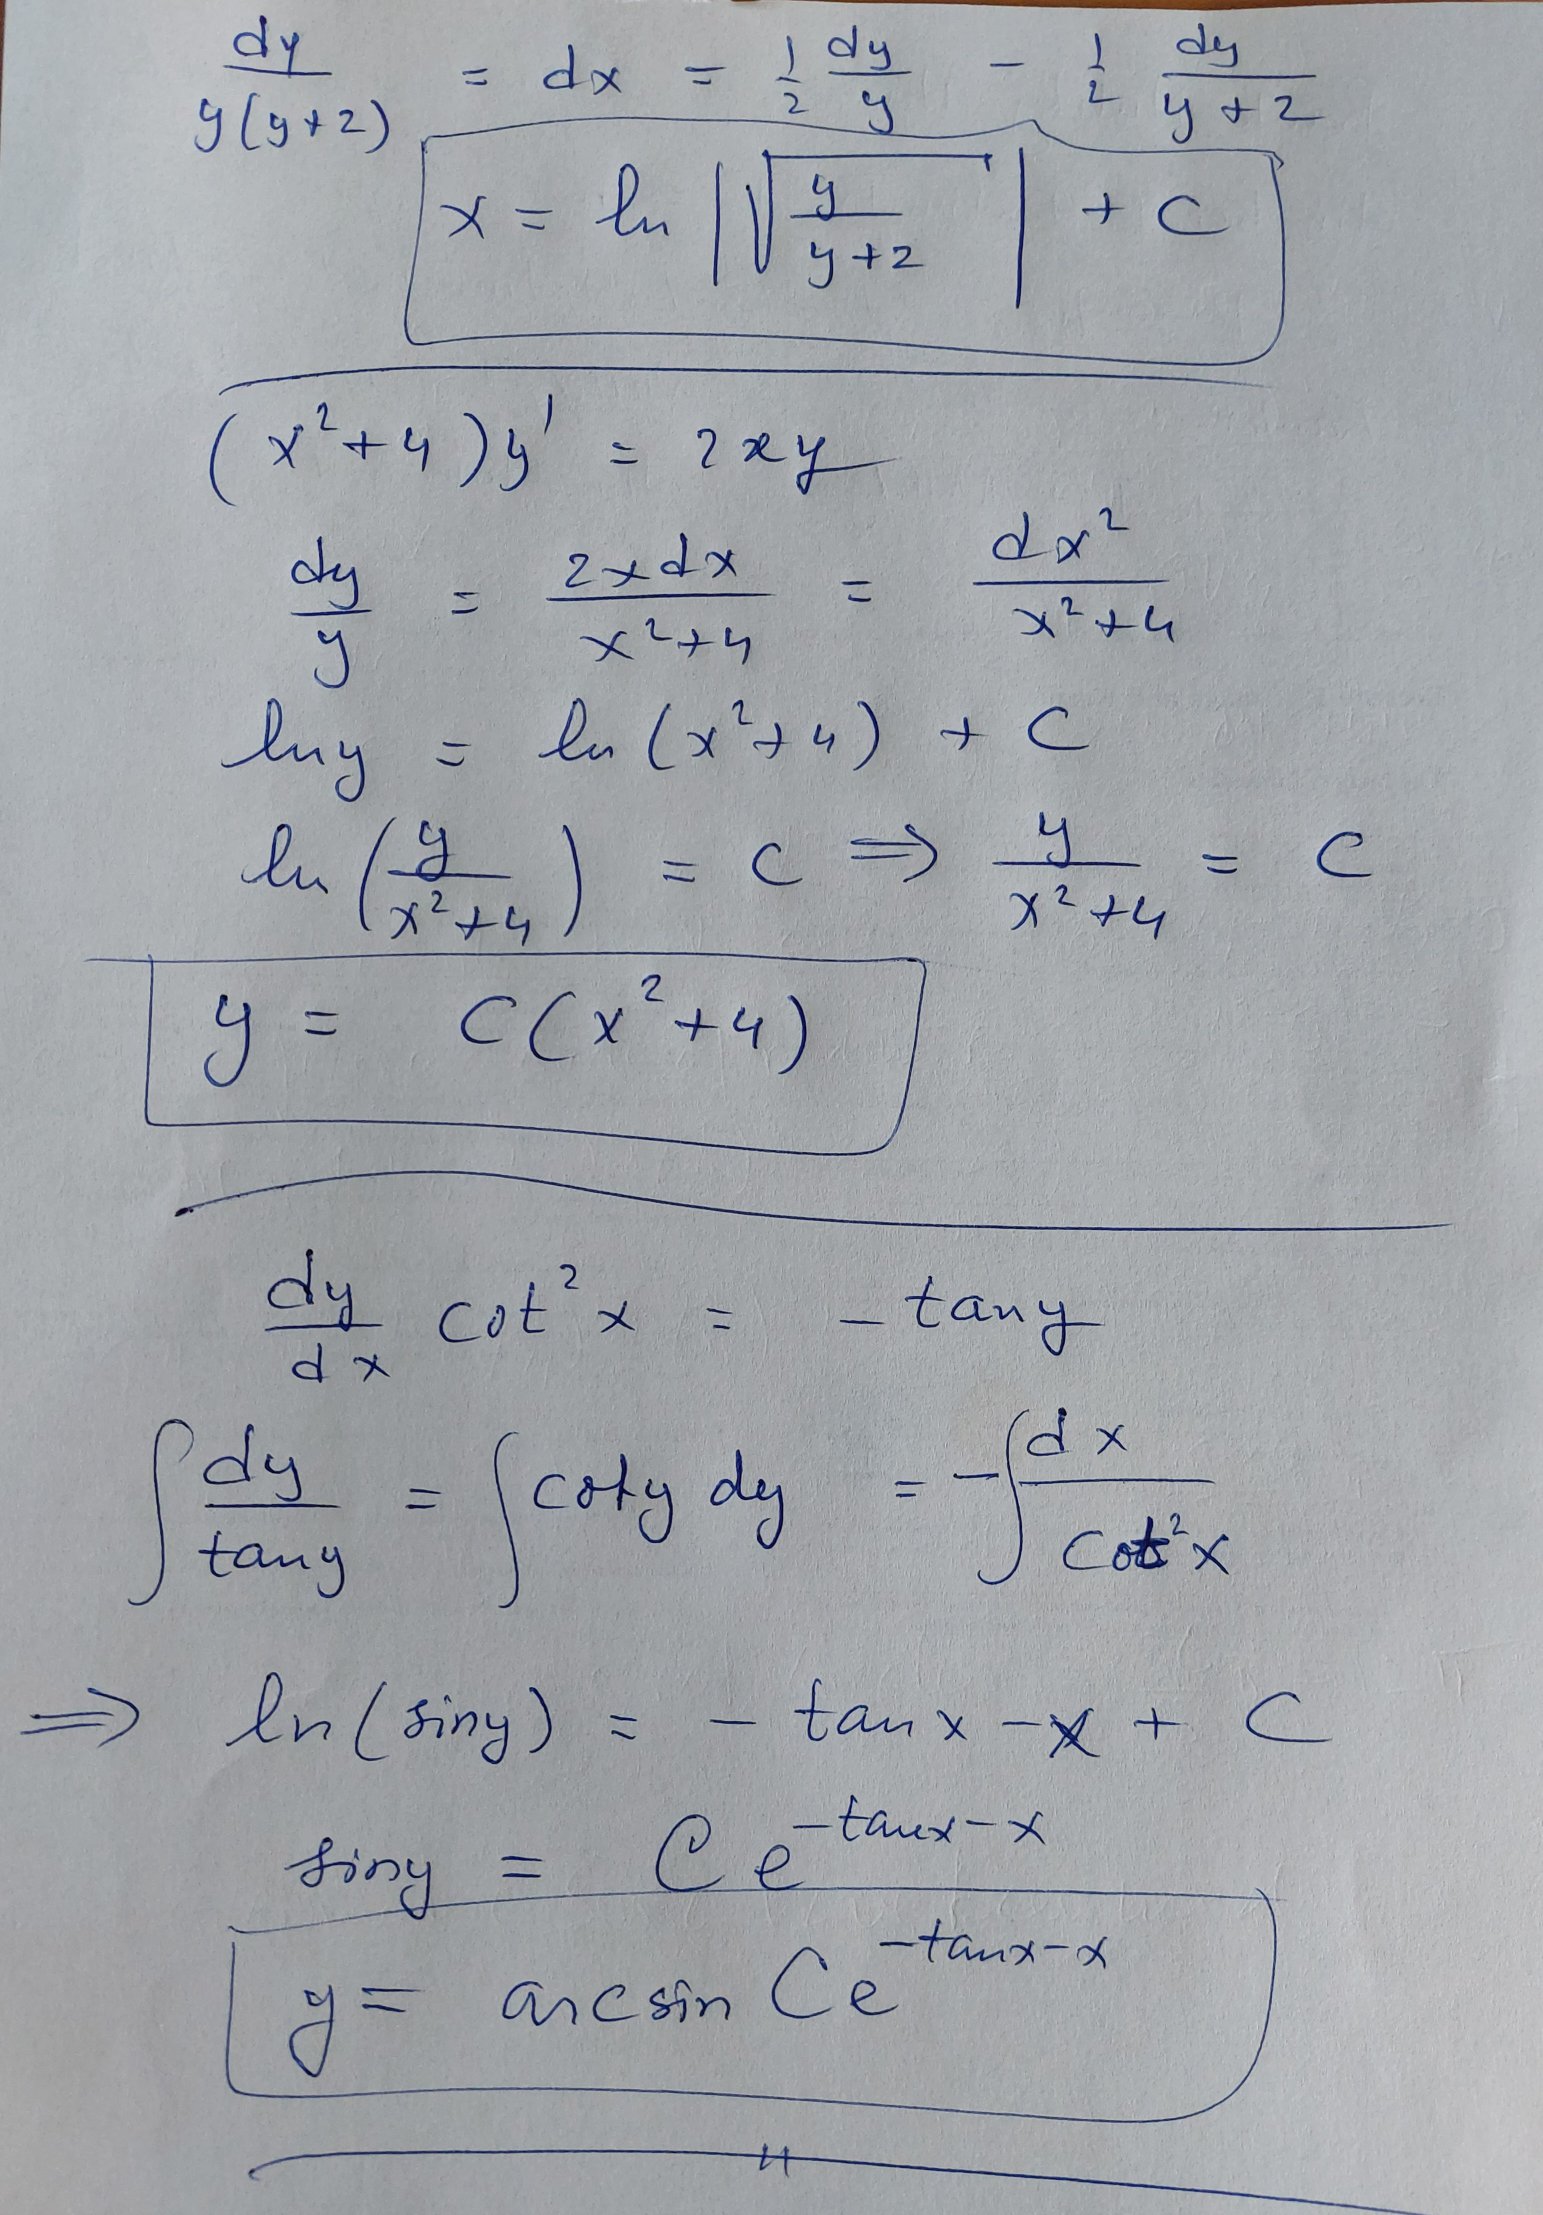 dy/(y(y+2)) = dx = 1/2 dy/y - 1/2 dy/(y+2)
x = ln |√(y/(y+2))| + C
(x²+4)y' = 2xy
dy/y = 2xdx/(x²+4) = dx²/(x²+4)
lny = ln(x²+4) + C
ln(y/(x²+4)) = C ⇒ y/(x²+4) = C
y = C(x²+4)
dy/dx cot²x = - tany
∫ dy/tany = ∫ coty dy = -∫ dx/cot²x
⇒ ln(siny) = - tanx - x + C
siny = Ce^(-tanx-x)
y = arcsin Ce^(-tanx-x)